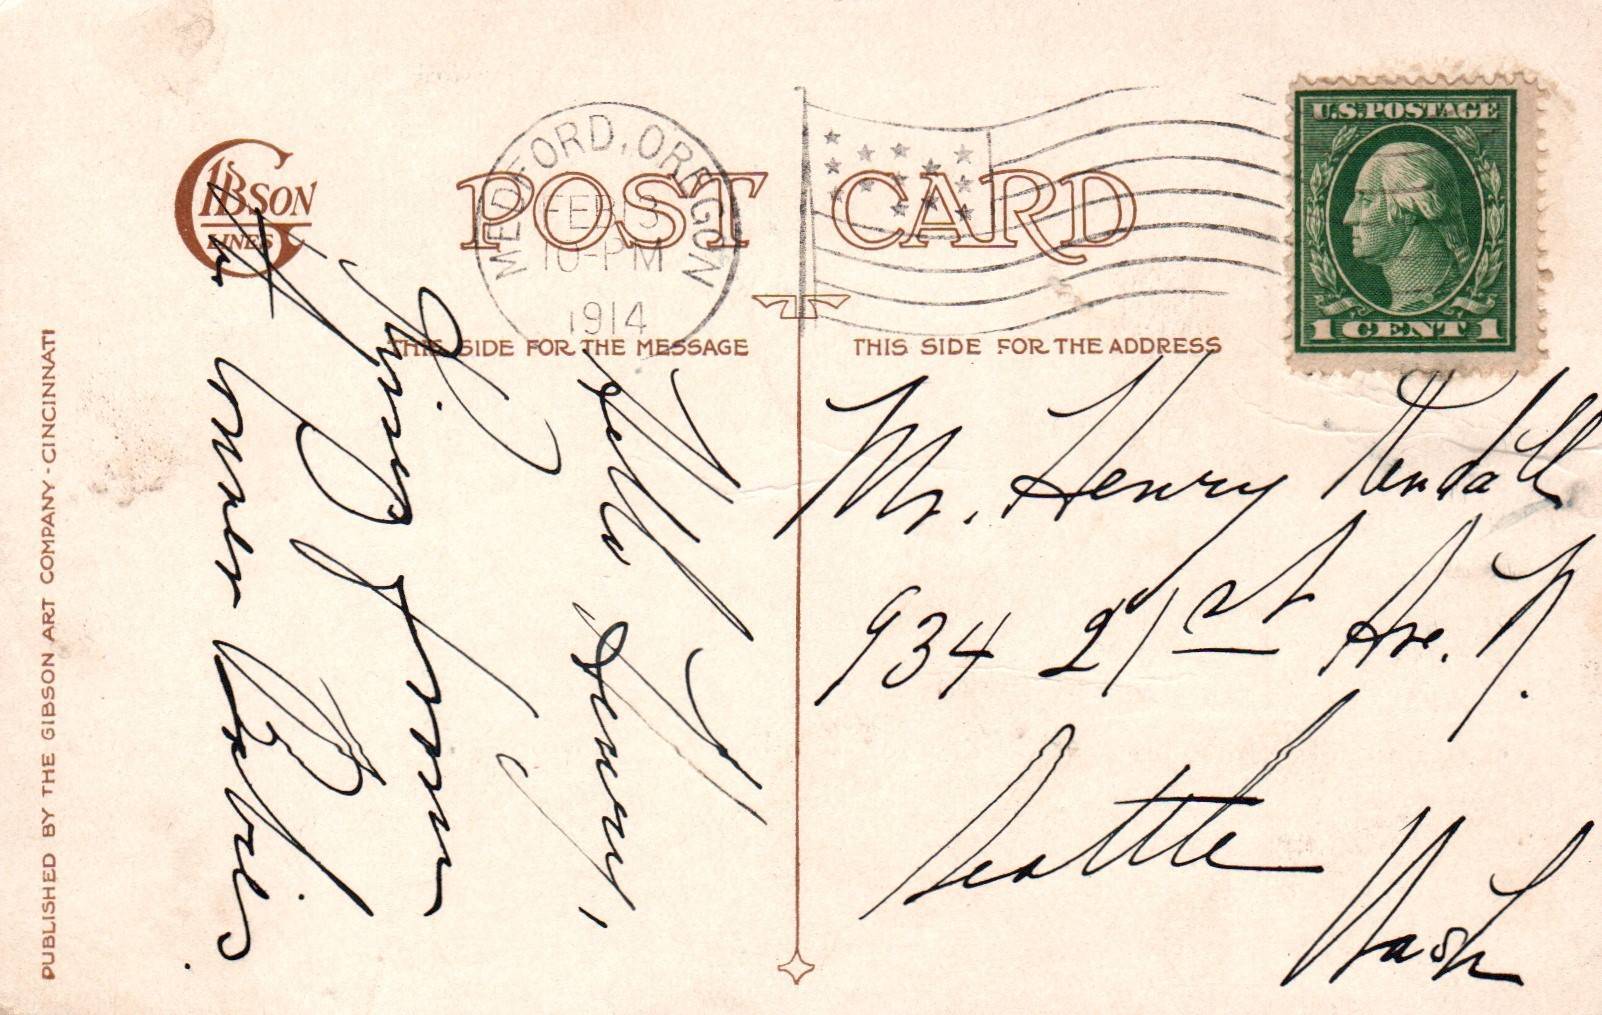 GIBSON
LINES
POST CARD
MEDFORD, OREGON
FEB 3
10-PM
1914
U.S. POSTAGE
1 CENT 1
THIS SIDE FOR THE MESSAGE
THIS SIDE FOR THE ADDRESS
Hello Henry,
from
Mr. Henry Kendall
934 21st Ave. N.
Seattle
Wash
PUBLISHED BY THE GIBSON ART COMPANY - CINCINNATI